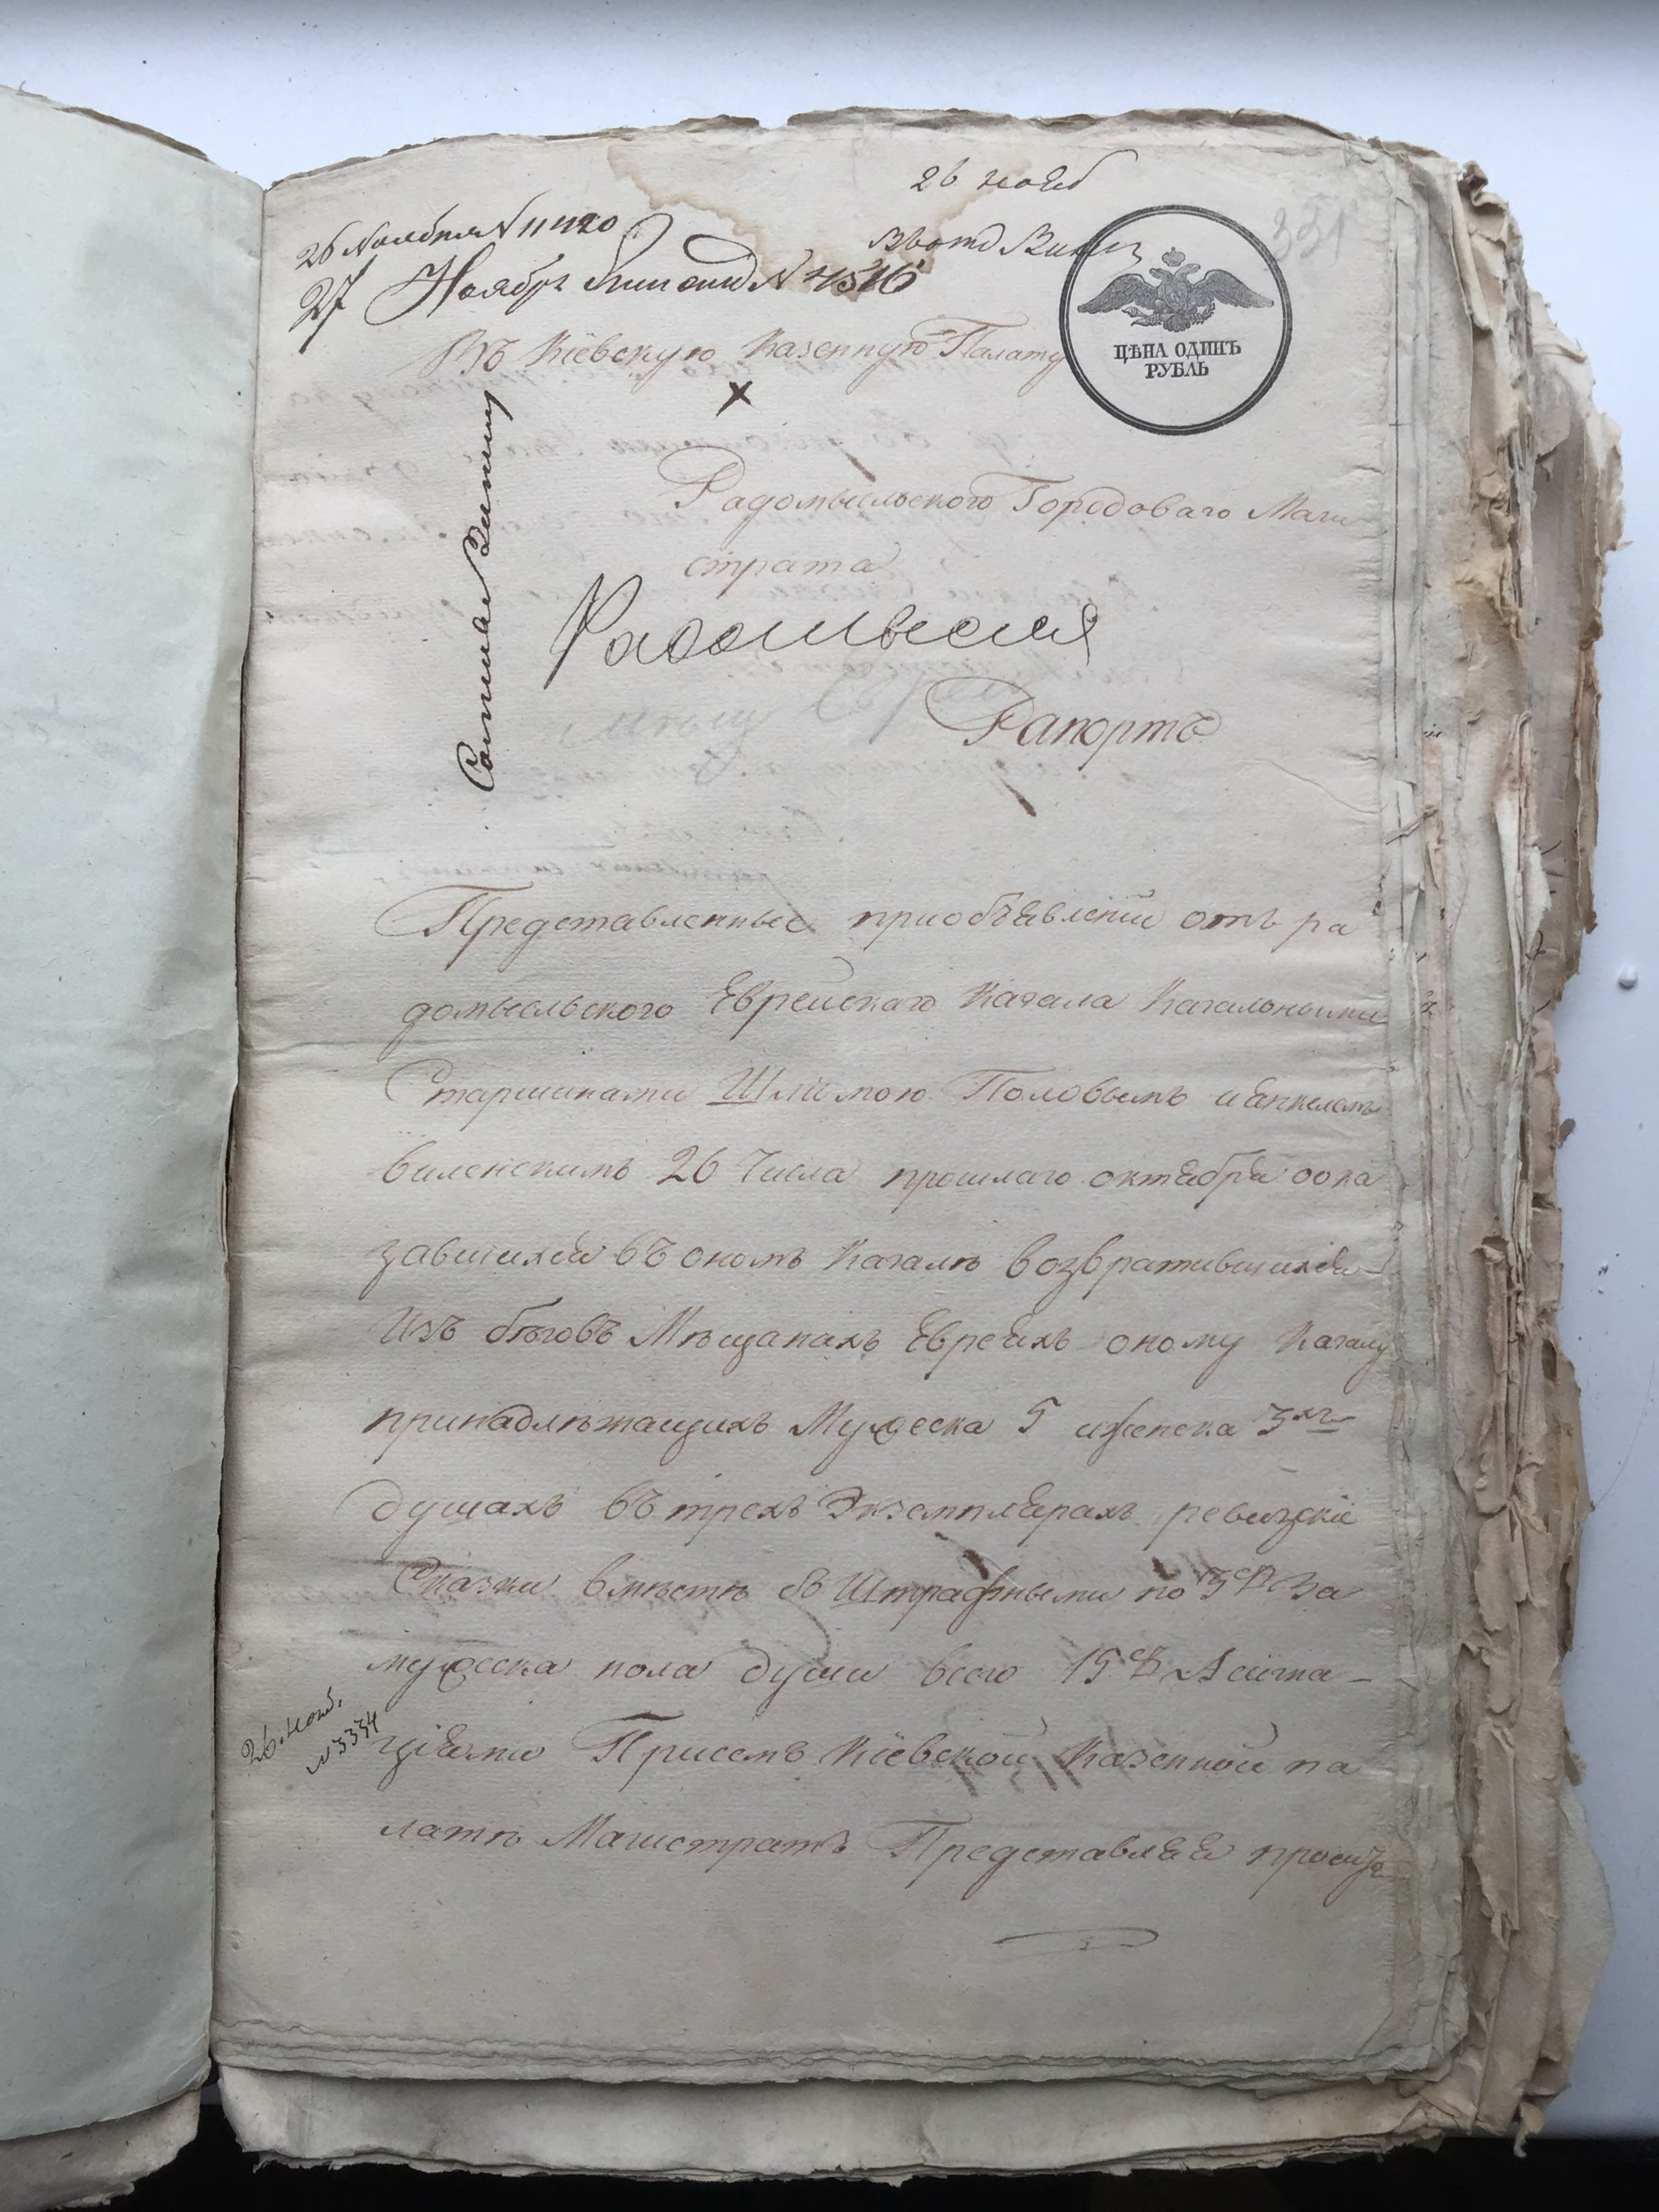 26 нояб
351
26 Ноября N 11420
27 Ноября N 4516
ЦѢНА ОДИНЪ
РУБЛЬ
Въ Кіевскую Казенную Палату
Радомысльского Городоваго Маги
страта
Рапортъ
Представленные приобъявленіи отъ ра
домысльского Еврейскаго Кагала Кагальными
Старшинами Шліомою Половымъ иянкелемъ
виленскимъ 26 Числа прошлаго октября оока
завшихся въ ономъ Кагалѣ возвратившихся
Изъ бѣговъ Мѣщанахъ Евреяхъ оному Кагалу
принадлѣжащихъ Мужеска 5 иженска 3хъ
душахъ въ трехъ Экземплярахъ ревизскіе
Сказки вмѣстѣ съ Штрафными по За
мужеска пола души всего 15 Ассигна
ціями Присемъ Кіевской Казенной па
латѣ Магистратъ Представляя проситъ
26. нояб.
N 3334